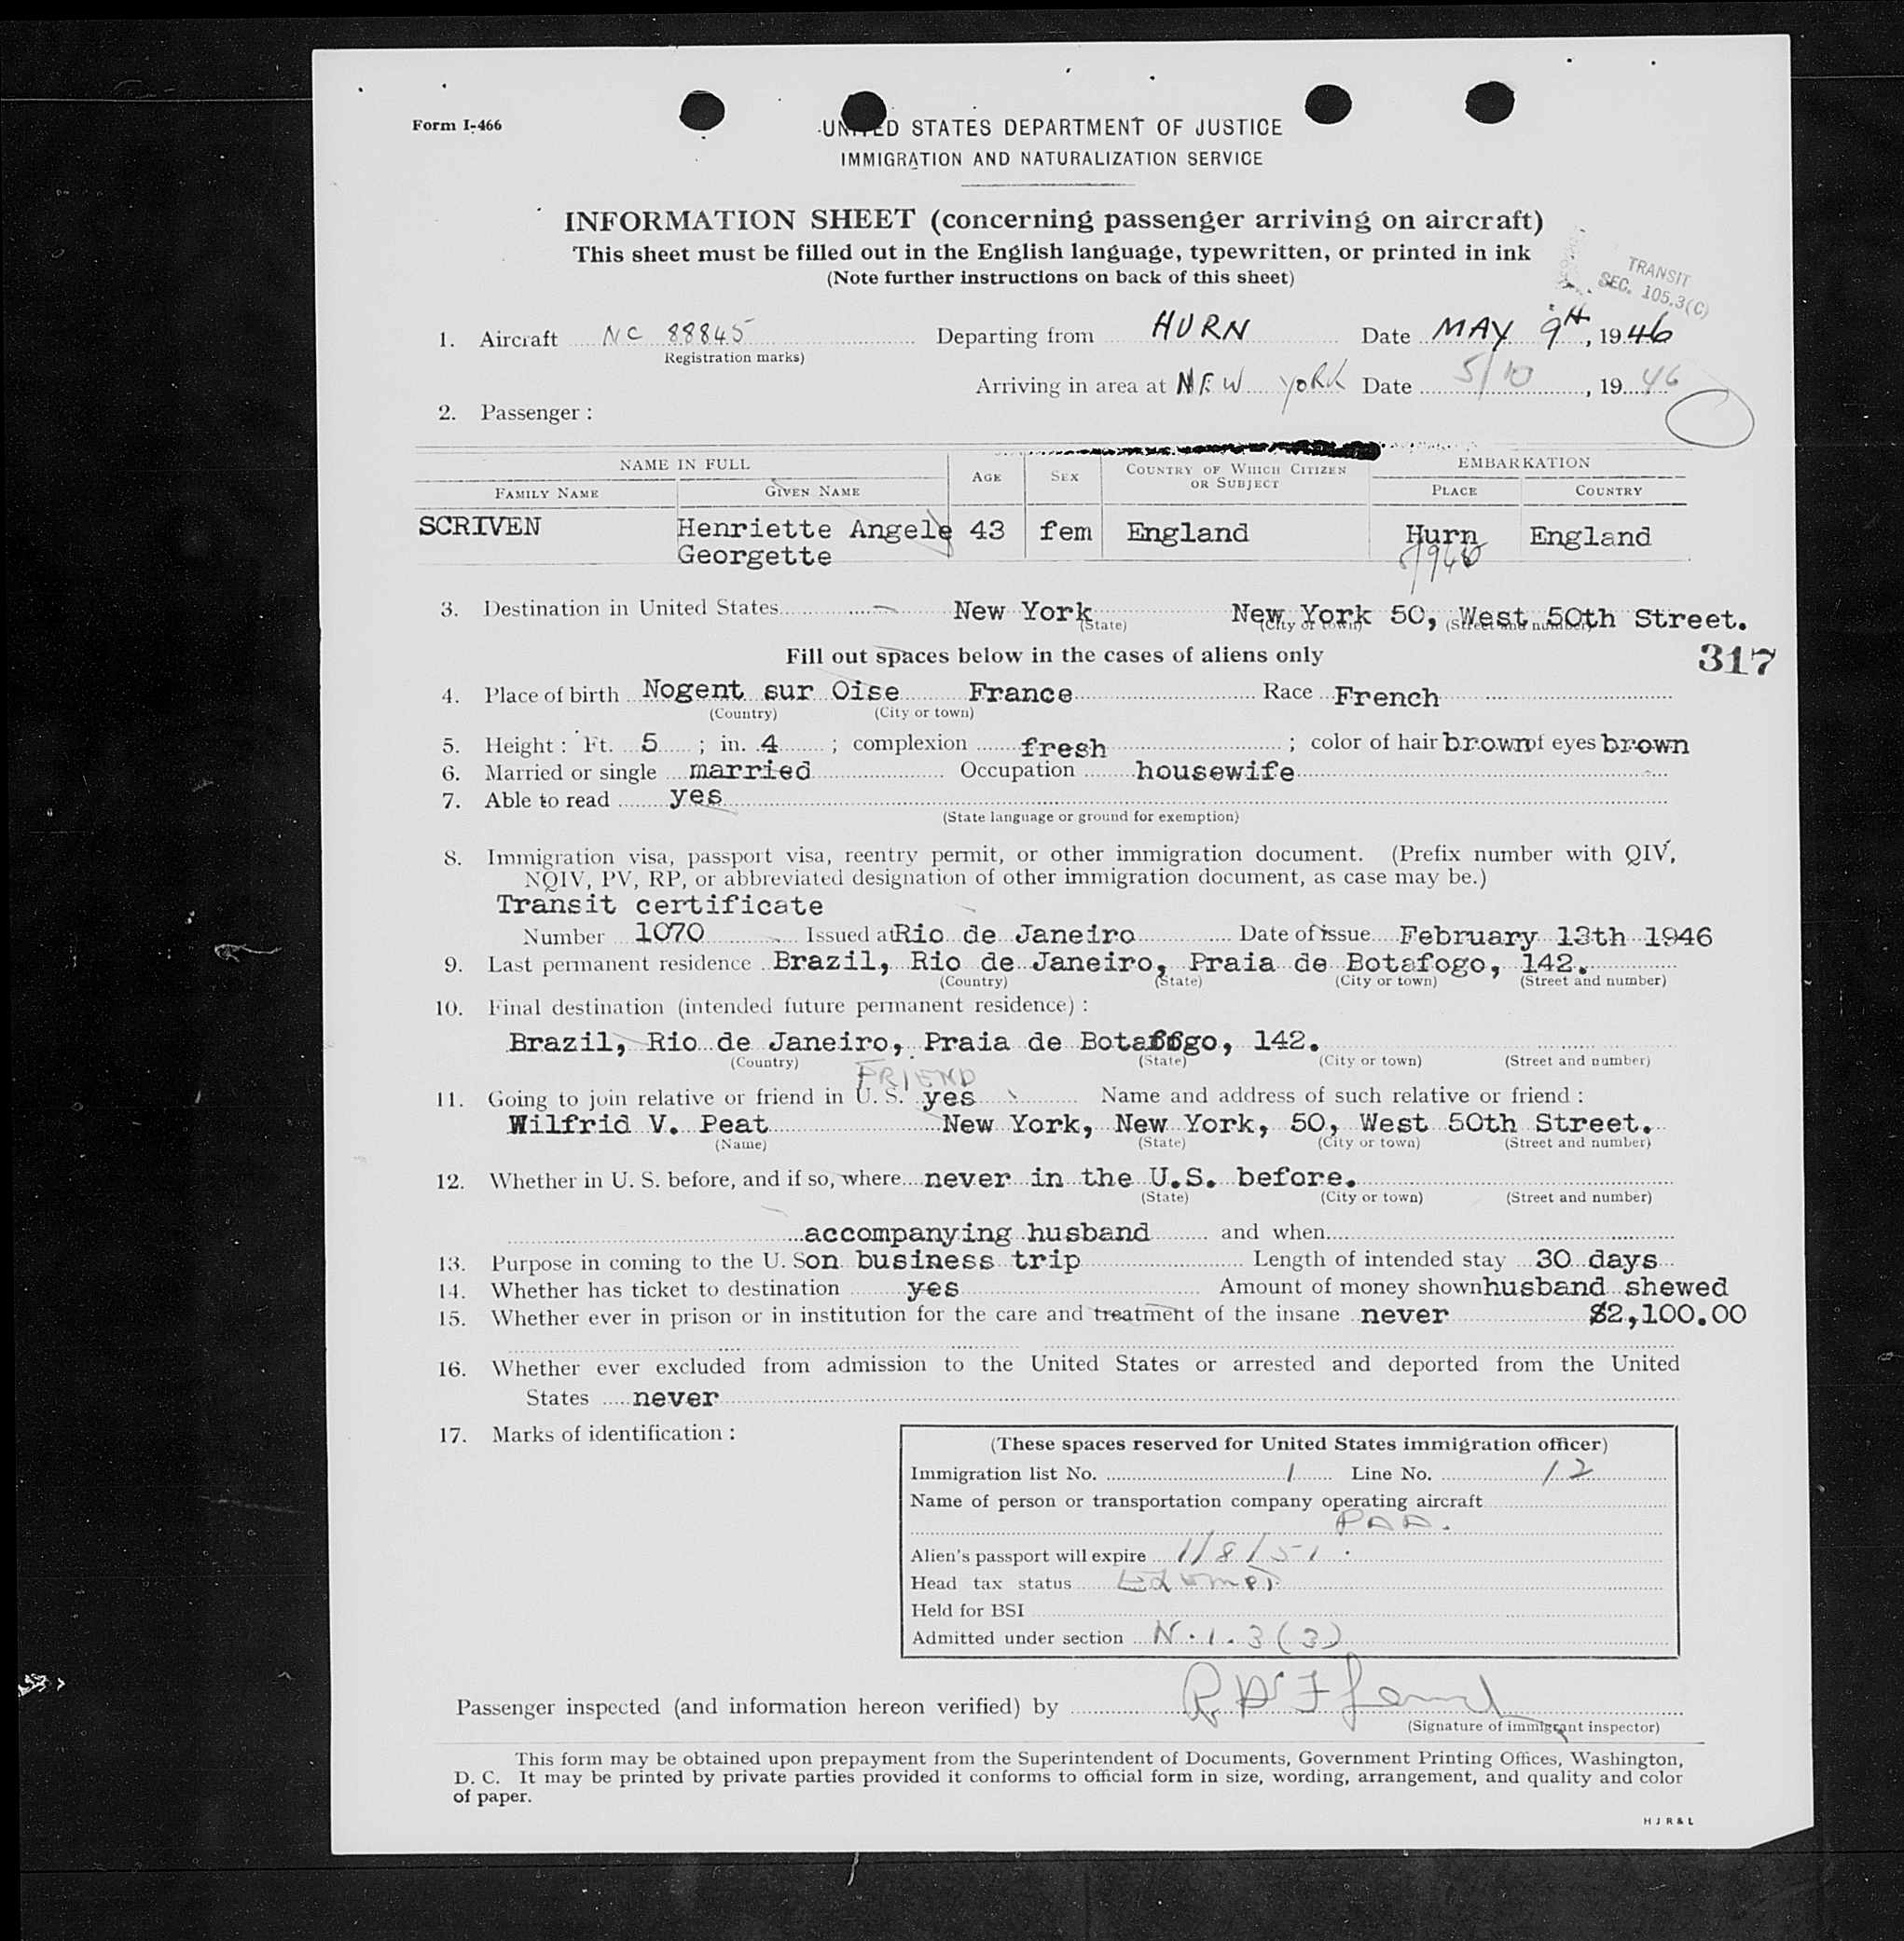 Form I-466
UNITED STATES DEPARTMENT OF JUSTICE
IMMIGRATION AND NATURALIZATION SERVICE
INFORMATION SHEET (concerning passenger arriving on aircraft)
This sheet must be filled out in the English language, typewritten, or printed in ink
(Note further instructions on back of this sheet)
TRANSIT
SEC. 105.3(C)
1. Aircraft NC 88845 Departing from HURN Date MAY 9th, 1946
Registration marks)
Arriving in area at NEW YORK Date 5/10, 1946
2. Passenger:
NAME IN FULL AGE SEX COUNTRY OF WHICH CITIZEN OR SUBJECT EMBARKATION
FAMILY NAME GIVEN NAME PLACE COUNTRY
SCRIVEN Henriette Angele 43 fem England Hurn England
Georgette
3. Destination in United States New York New York 50, West 50th Street.
(State) (City or town) (Street and number)
317
Fill out spaces below in the cases of aliens only
4. Place of birth Nogent sur Oise France Race French
(Country) (City or town)
5. Height: Ft. 5; in. 4; complexion fresh; color of hair brown of eyes brown
6. Married or single married Occupation housewife
7. Able to read yes
(State language or ground for exemption)
8. Immigration visa, passport visa, reentry permit, or other immigration document. (Prefix number with QIV,
NQIV, PV, RP, or abbreviated designation of other immigration document, as case may be.)
Transit certificate
Number 1070 Issued at Rio de Janeiro Date of issue February 13th 1946
9. Last permanent residence Brazil, Rio de Janeiro, Praia de Botafogo, 142.
(Country) (State) (City or town) (Street and number)
10. Final destination (intended future permanent residence):
Brazil, Rio de Janeiro, Praia de Botafogo, 142.
(Country) (State) (City or town) (Street and number)
FRIEND
11. Going to join relative or friend in U. S. yes Name and address of such relative or friend:
Wilfrid V. Peat New York, New York, 50, West 50th Street.
(Name) (State) (City or town) (Street and number)
12. Whether in U. S. before, and if so, where never in the U.S. before.
(State) (City or town) (Street and number)
accompanying husband and when
13. Purpose in coming to the U. S on business trip Length of intended stay 30 days
14. Whether has ticket to destination yes Amount of money shown husband shewed
15. Whether ever in prison or in institution for the care and treatment of the insane never $2,100.00
16. Whether ever excluded from admission to the United States or arrested and deported from the United
States never
17. Marks of identification:
(These spaces reserved for United States immigration officer)
Immigration list No. 1 Line No. 12
Name of person or transportation company operating aircraft
PAA.
Alien's passport will expire 1/8/51.
Head tax status Exempt
Held for BSI
Admitted under section N.1.3(3)
Passenger inspected (and information hereon verified) by
(Signature of immigrant inspector)
This form may be obtained upon prepayment from the Superintendent of Documents, Government Printing Offices, Washington,
D. C. It may be printed by private parties provided it conforms to official form in size, wording, arrangement, and quality and color
of paper.
H J R & L